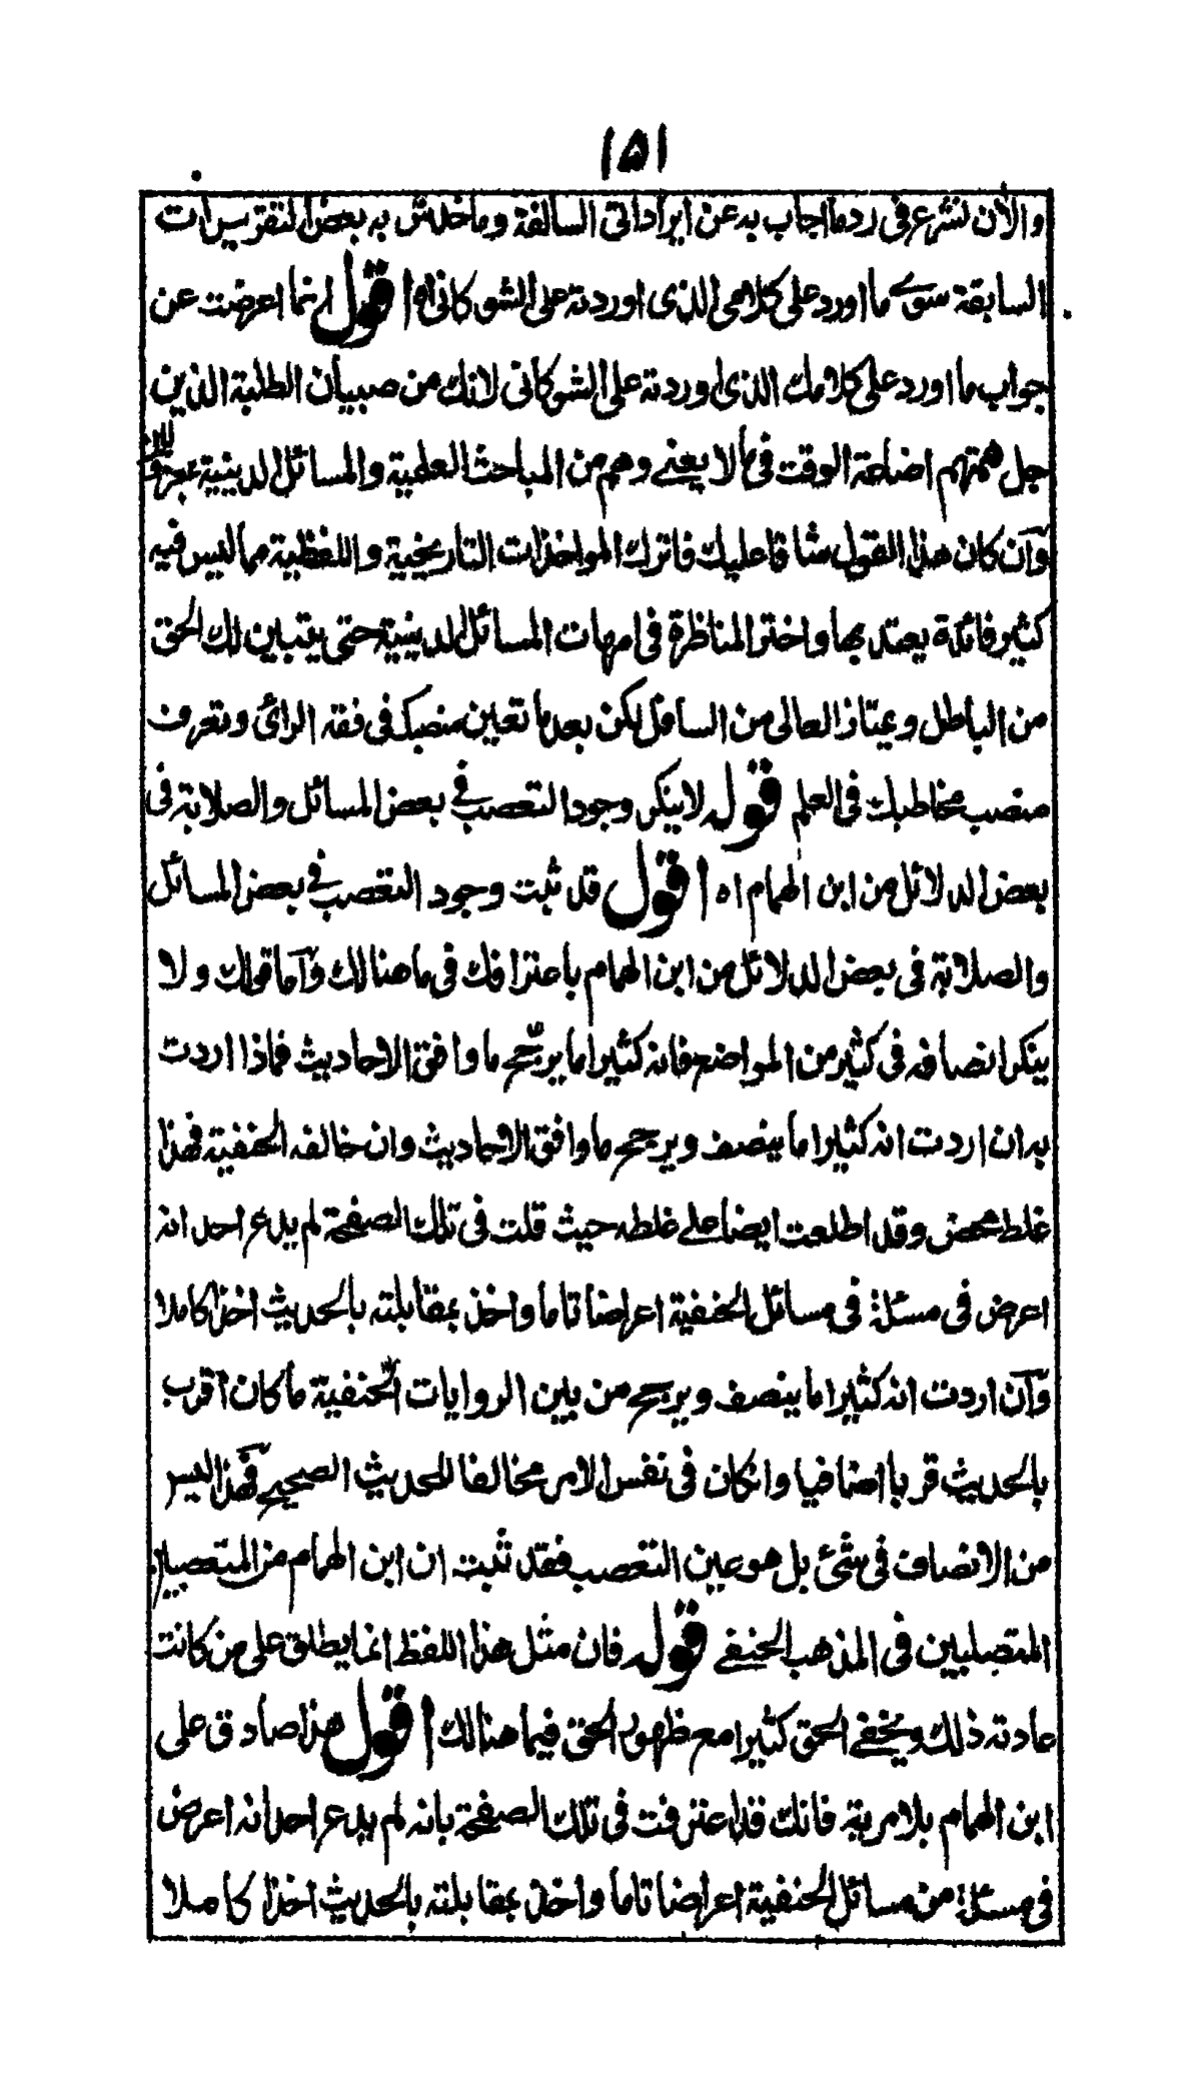 ١٥١
والآن نشرع فى رد ما اجاب به عن ايراداتى السالفة وما خدش به بعض التقريرات
السابقة سوے ما اورد على كلامى الذى اوردته على الشوكانى اه اقول انما اعرضت عن
جواب ما اورد على كلامك الذى اوردته على الشوكانى لانك من صبيان الطلبة الذين
جل همتهم اضاعة الوقت فى ما لا يعنے وهم من المباحث العلمية والمسائل الدينية
وآن كان هذا القول شاقا عليك فاترك المواخذات التاريخية واللفظية مما ليس فيه
كثير فائدة يعتد بها واختر المناظرة فى امهات المسائل الدينية حتى يتبين لك الحق
من الباطل ويمتاز العالى من السافل لكن بعد ما تعين منصبك فى فقه الرائ وتعرف
منصب مخاطبك فى العلم قوله لا ينكر وجود التعصب فے بعض المسائل والصلابة فى
بعض الدلائل من ابن الهمام اه اقول قد ثبت وجود التعصب فے بعض المسائل
والصلابة فى بعض الدلائل من ابن الهمام باعترافك فى ما هنالك وآما قولك ولا
ينكر انصافه فى كثير من المواضع فانه كثيرا ما يرجّح ما وافق الاحاديث فماذا اردت
به ان اردت انه كثيرا ما ينصف ويرجح ما وافق الاحاديث وان خالفه الحنفية فهذا
غلط محض وقد اطلعت ايضا علے غلطه حيث قلت فى تلك الصفحة لم يدع احد انه
اعرض فى مسئلة فى مسائل الحنفية اعراضا تاما واخذ بمقابلته بالحديث اخذا كاملا
وآن اردت انه كثيرا ما ينصف ويرجح من بين الروايات الحنفية ما كان اقرب
بالحديث قربا اضافيا وانكان فى نفس الامر مخالفا للحديث الصحيح فهذا ليس
من الانصاف فى شئ بل هو عين التعصب فقد ثبت ان ابن الهمام من المتعصبين
المتصلبين فى المذهب الحنفے قوله فان مثل هذا اللفظ انما يطلق على من كانت
عادته ذلك ويخفے الحق كثيرا مع ظهور الحق فيما هنالك اقول هذا صادق على
ابن الهمام بلا مرية فانك قد اعترفت فى تلك الصفحة بانه لم يدع احد انه اعرض
فى مسئلة من مسائل الحنفية اعراضا تاما واخذ بمقابلته بالحديث اخذا كاملا